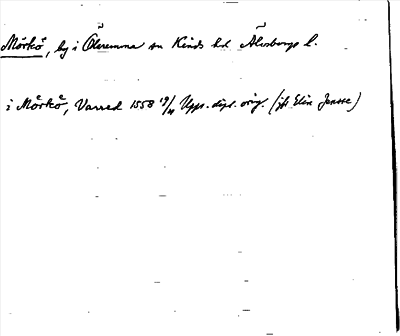 Mörkö, by i Ölsremma sn Kinds hd Älvsborgs l.
i Mörkö, Varred 1558 19/11 Upps. dipl. orig. (jfr Elin Jensse)